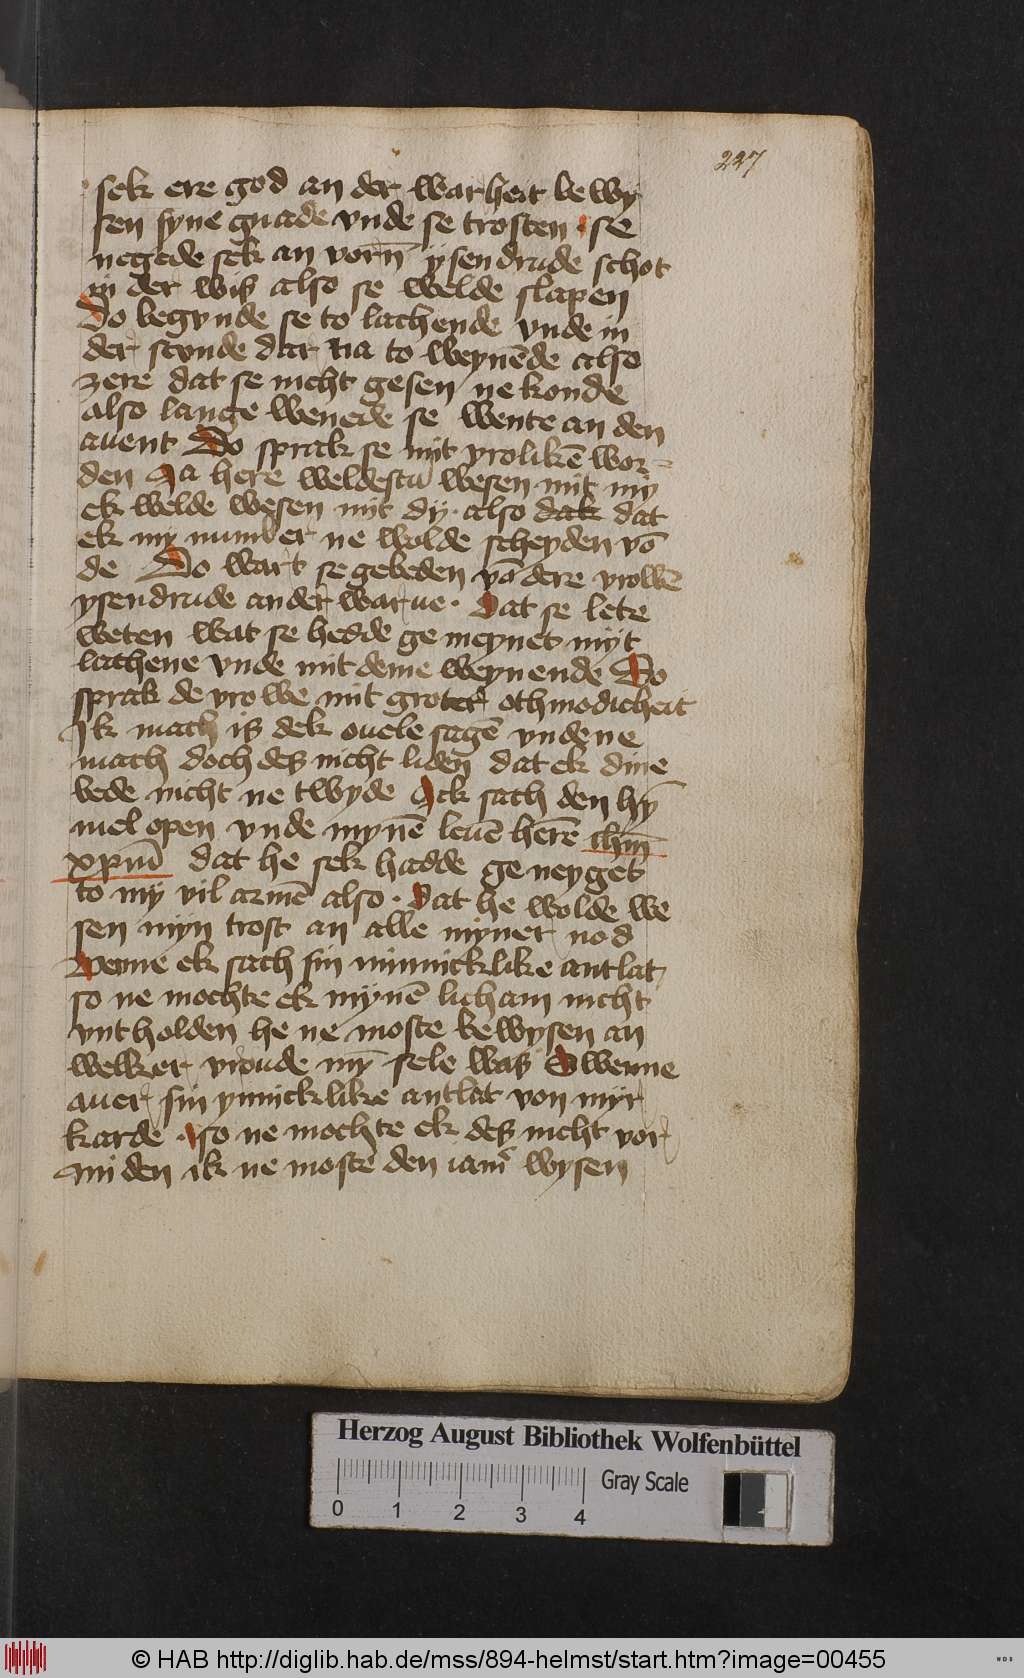 227
sek ere god an der warheit bewy
sen syne gnade vnde se trosten · se
negede sek an vorn̄ ysendrude schot
in der wiß also se welde slapen
Do begynde se to lachende vnde in
der stunde dar na to weynēde also
zere dat se nicht gesen ne konde
also lange wenede se wente an den
auent Do sprak se mit vrolikē wor-
den Ja here weldestu wesen mit my
ek welde wesen mit dy · also dak dat
ek my nummer ne wolde scheyden vō
de Do wart se gebeden vā dere vrowē
ysendrude ander warue · Dat se lete
weten wat se hedde gemeynet myt
lachene vnde mit deme weynende Do
sprak de vrowe mit groter othmodicheit
Ik mach iß dek ouele sagē vnde ne
mach doch deß nicht liden dat ek dine
bede nicht ne twyde Ick sach den hȳ
mel open vnde mynē leuē herē ihm̄
xpm̄ dat he sek hadde geneyget
to my vil armē also · Dat he wolde we
sen myn trost an alle myner nod
Wenne ek sach sin minnicklike antlat
so ne mochte ek mynē licham nicht
vntholden he ne moste bewysen an
welker vroude my̅ sele waß Swenne
auer sin ynnicklike antlat von myr
karde · so ne mochte ek deß nicht vor
miden ik ne moste den iam͛ wysen
Herzog August Bibliothek Wolfenbüttel
Gray Scale
0 1 2 3 4
© HAB http://diglib.hab.de/mss/894-helmst/start.htm?image=00455